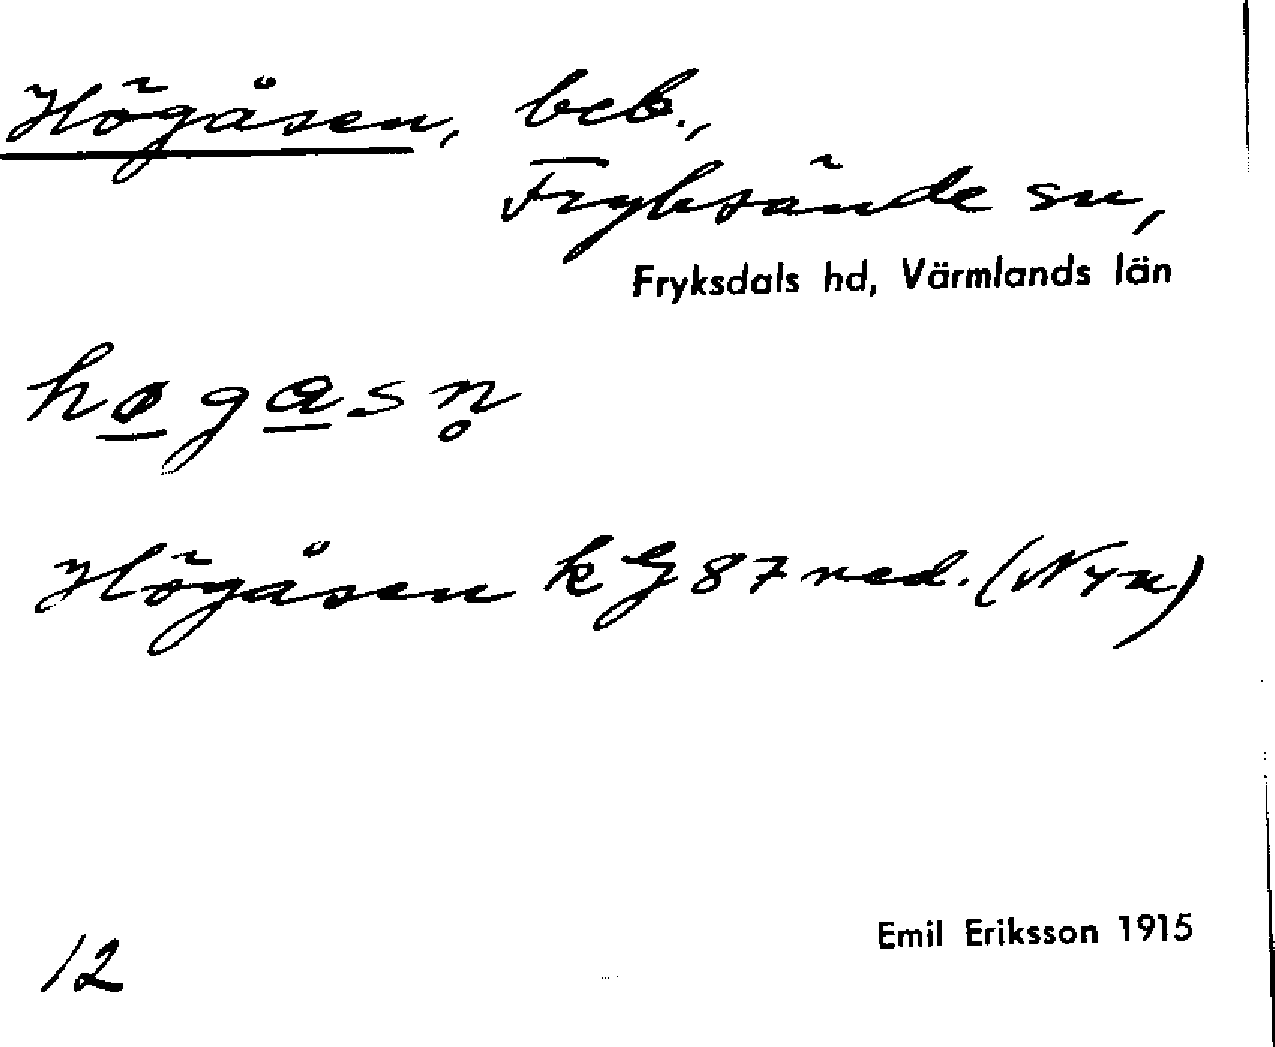 Högåsen, beb.,
Fryksände sn,
Fryksdals hd, Värmlands län
hø̲ga̲sn̥
Högåsen kG 87 ned. (Nyn)
Emil Eriksson 1915
12